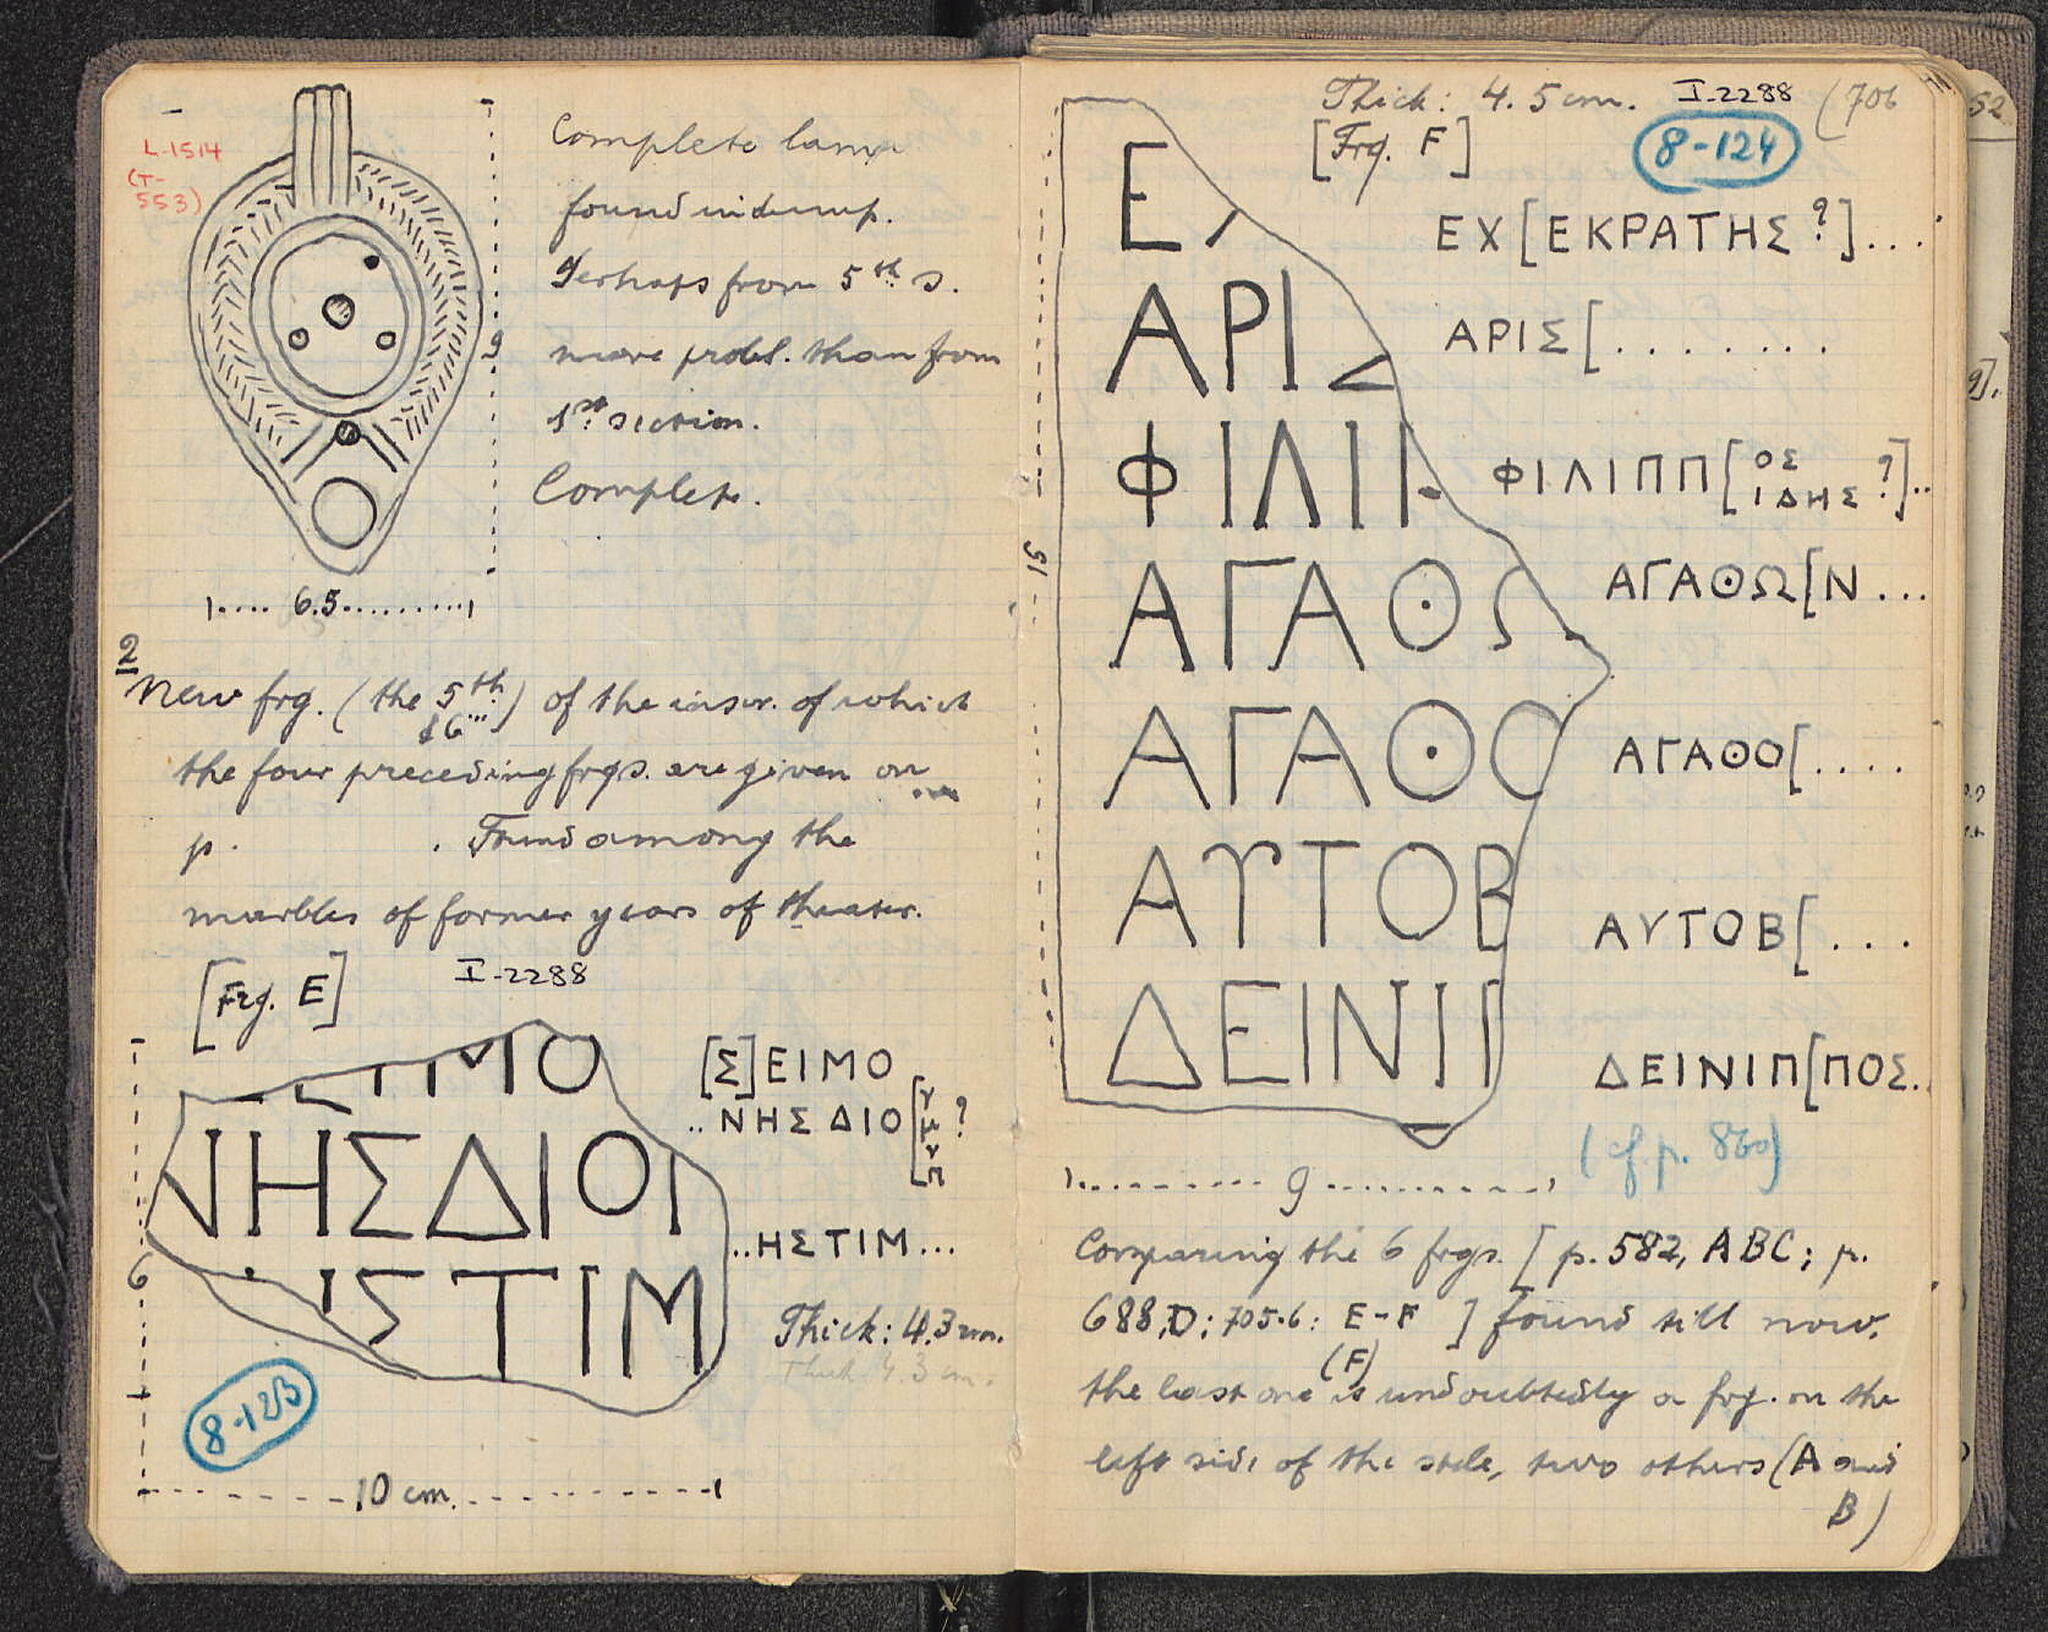 L-1514
(T-
553)
Complete lamp
found in dump.
Perhaps from 5th s.
more probl. than from
1st section.
Complete.
9
6.5
2
New frg. (the 5th) of the inscr. of which
& 6
the four preceding frgs. are given on
p. . Found among the
marbles of former years of theater.
[Frg. E]
I-2288
ΕΙΜΟ
ΝΗΣΔΙΟΙ
ΙΣΤΙΜ
[Σ]ΕΙΜΟ
..ΝΗΣ ΔΙΟ[γ μ ν π ?
..ΗΣΤΙΜ...
Thick: 4.3 cm.
Thick 4.3 cm.
6
8-123
10 cm.
Thick: 4.5 cm. I-2288 (706
[Frg. F]
8-124
Ε
ΑΡΙΣ
ΦΙΛΙΓ
ΑΓΑΘΩ
ΑΓΑΘΟ
ΑΥΤΟΒ
ΔΕΙΝΙΠ
ΕΧ[ΕΚΡΑΤΗΣ?]...
ΑΡΙΣ[........
ΦΙΛΙΠΠ[ΟΣ ΙΔΗΣ ?]..
ΑΓΑΘΩ[Ν...
ΑΓΑΘΟ[....
ΑΥΤΟΒ[...
ΔΕΙΝΙΠ[ΠΟΣ.
15
(cf. p. 860)
9
Comparing the 6 frgs. [p. 582, ABC; p.
688, D; 705-6: E-F] found till now,
the last one (F) is undoubtedly a frg. on the
left side of the stele, two others (A and
B)
52